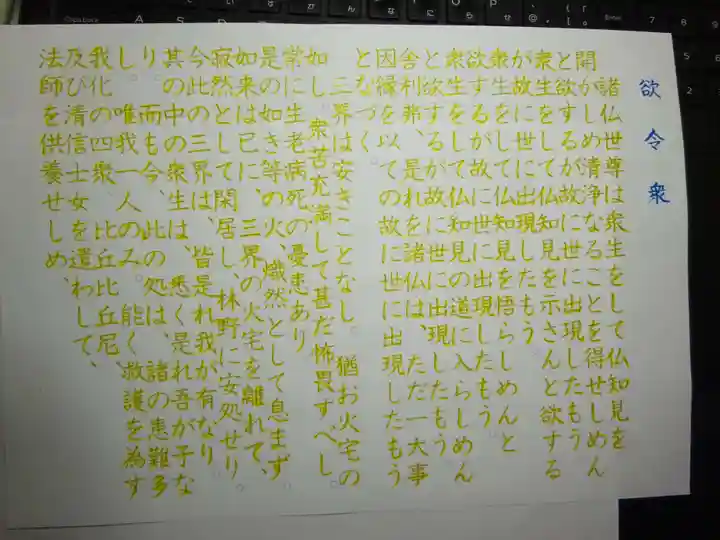 欲令衆
諸仏世尊は衆生をして仏知見を
開かしめ清浄なることを得せしめん
と欲するが故に世に出現したもう
衆生に仏知見を示さんと欲する
が故に世に出現したもう
衆生をして仏知見を悟らしめんと
欲するが故に世に出現したもう
衆生をして仏知見の道に入らしめん
と欲するが故に世に出現したもう
舎利弗、是れを諸仏は、ただ一大事
因縁を以ての故に世に出現したもう
となづく
三界は安きことなし 猶お火宅の
如し 衆苦充満して甚だ怖畏すべし。
常に生老病死の、憂患あり
是の如き等の火、熾然として息まず
如来は已に、三界の火宅を離れて、
寂然として閑居し、林野に安処せり。
今此の三界は、皆是れ我が有なり
其の中の衆生は、悉く是れ吾が子な
り。而も今、此の処は、諸の患難多
し。唯我一人のみ、能く、救護を為す
我、化の四衆、比丘、比丘尼、
及び清信士女を遣わして、
法師を供養せしめ、